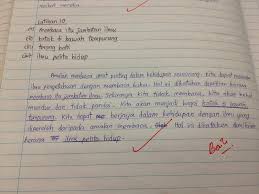 Latihan 10
(a) membaca itu jambatan ilmu
(b) katak di bawah tempurung
(c) tulang belakang
(d) ilmu pelita hidup
Amalan membaca amat penting dalam kehidupan seseorang. Kita dapat
ilmu pengetahuan dengan membaca buku. Hal ini dikatakan demikian kerana
membaca itu jambatan ilmu. Sekiranya kita tidak membaca, kita akan
mundur dan tidak pandai. Kita akan menjadi bagai katak di bawah
tempurung. Kita dapat berjaya dalam kehidupan dengan ilmu yang
diperoleh daripada amalan membaca. Hal ini dikatakan demikian
kerana ilmu pelita hidup.
Baik